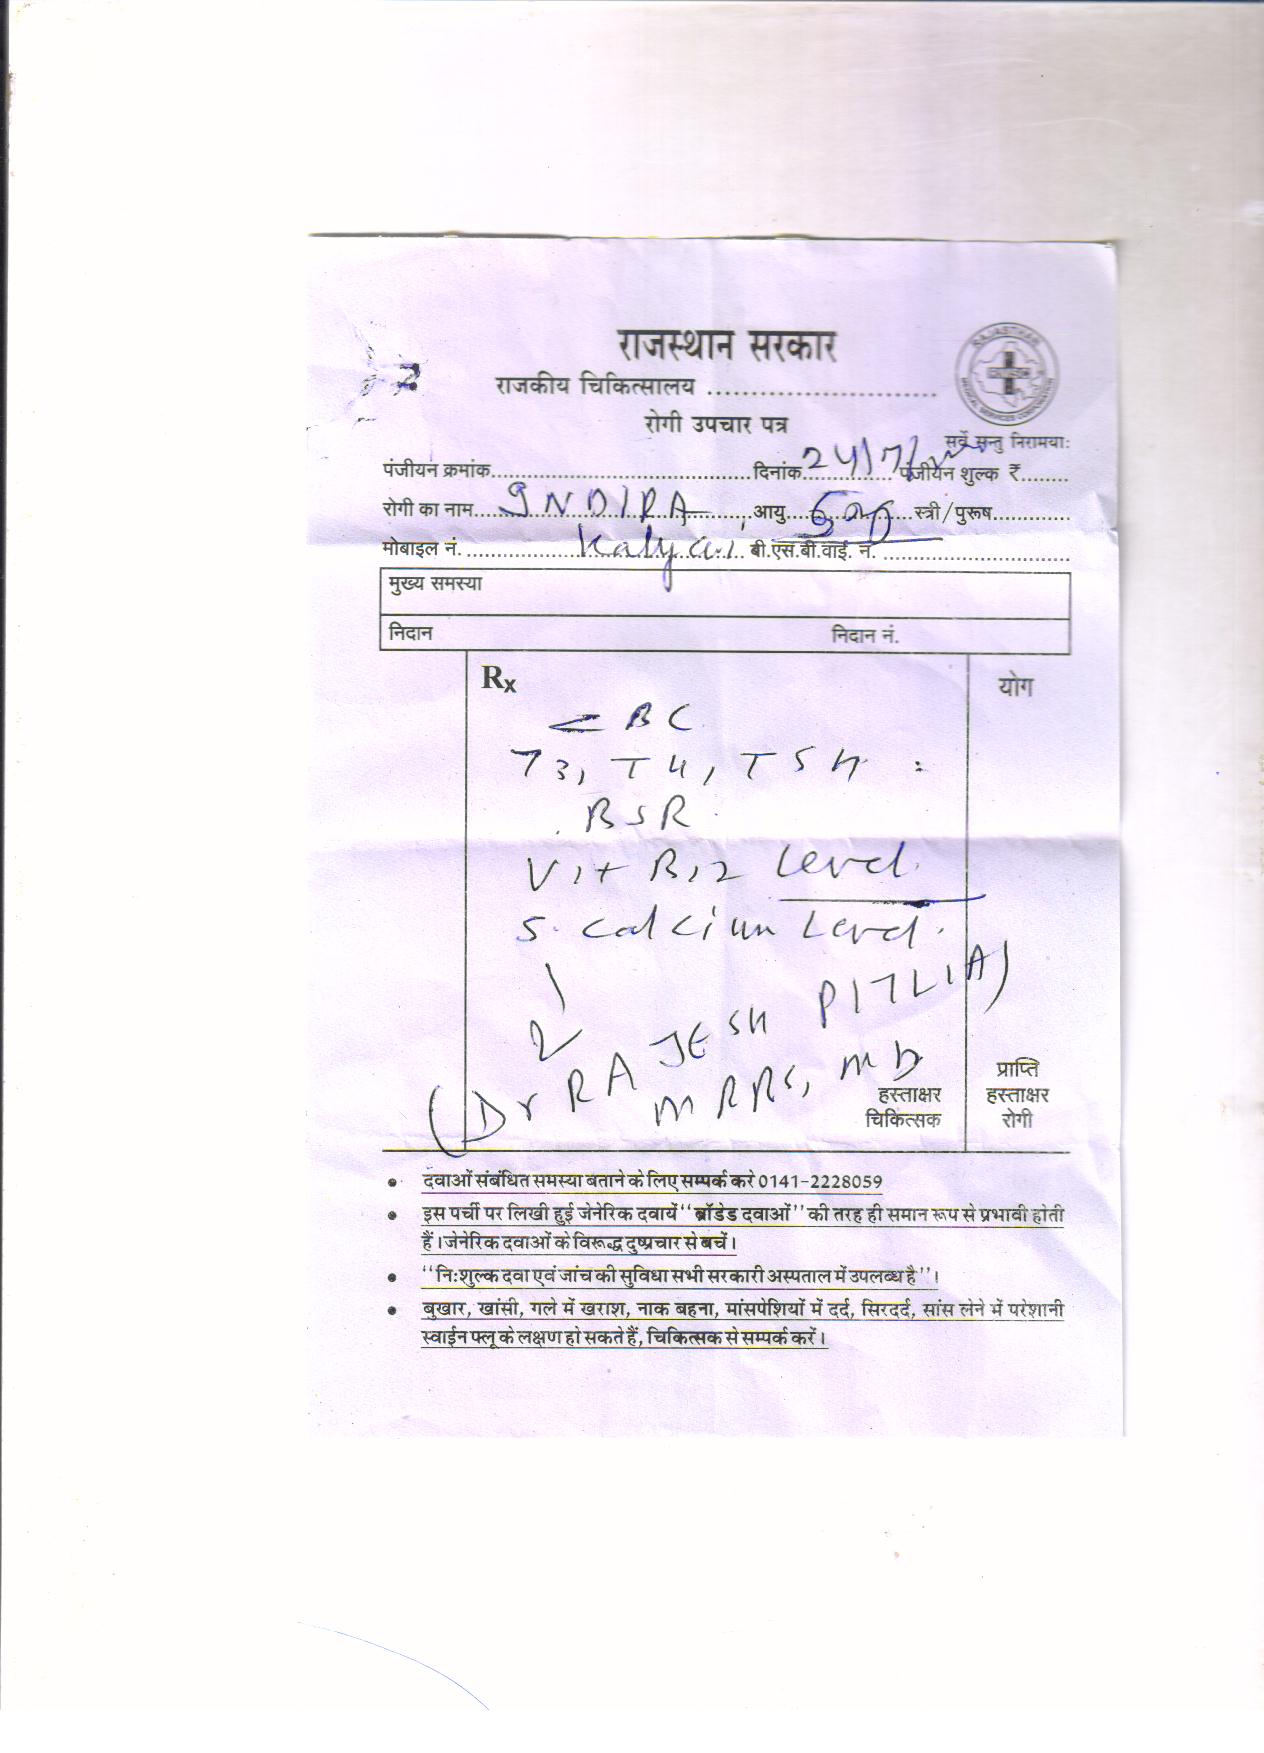 राजस्थान सरकार
राजकीय चिकित्सालय ..........................
रोगी उपचार पत्र
RAJASTHAN MEDICAL SERVICES CORPORATION
सर्वे सन्तु निरामयाः
पंजीयन क्रमांक....................................दिनांक 24/7/ पंजीयन शुल्क ₹........
रोगी का नाम INDIRA, आयु स्त्री/पुरूष.............
मोबाइल नं. .................... बी.एस.बी.वाई. नं. ..............................
मुख्य समस्या
निदान निदान नं.
Rx योग
BC
T3, T4, TSH
BSR
Vit B12 Level
S. Calcium Level.
(Dr RAJESH PITLIA)
MBBS, MD
हस्ताक्षर चिकित्सक
प्राप्ति हस्ताक्षर रोगी
• दवाओं संबंधित समस्या बताने के लिए सम्पर्क करे 0141-2228059
• इस पर्ची पर लिखी हुई जेनेरिक दवायें "ब्रॉडेड दवाओं" की तरह ही समान रूप से प्रभावी होती
हैं। जेनेरिक दवाओं के विरूद्ध दुष्प्रचार से बचें।
• "निःशुल्क दवा एवं जांच की सुविधा सभी सरकारी अस्पताल में उपलब्ध है"।
• बुखार, खांसी, गले में खराश, नाक बहना, मांसपेशियों में दर्द, सिरदर्द, सांस लेने में परेशानी
स्वाईन फ्लू के लक्षण हो सकते हैं, चिकित्सक से सम्पर्क करें।